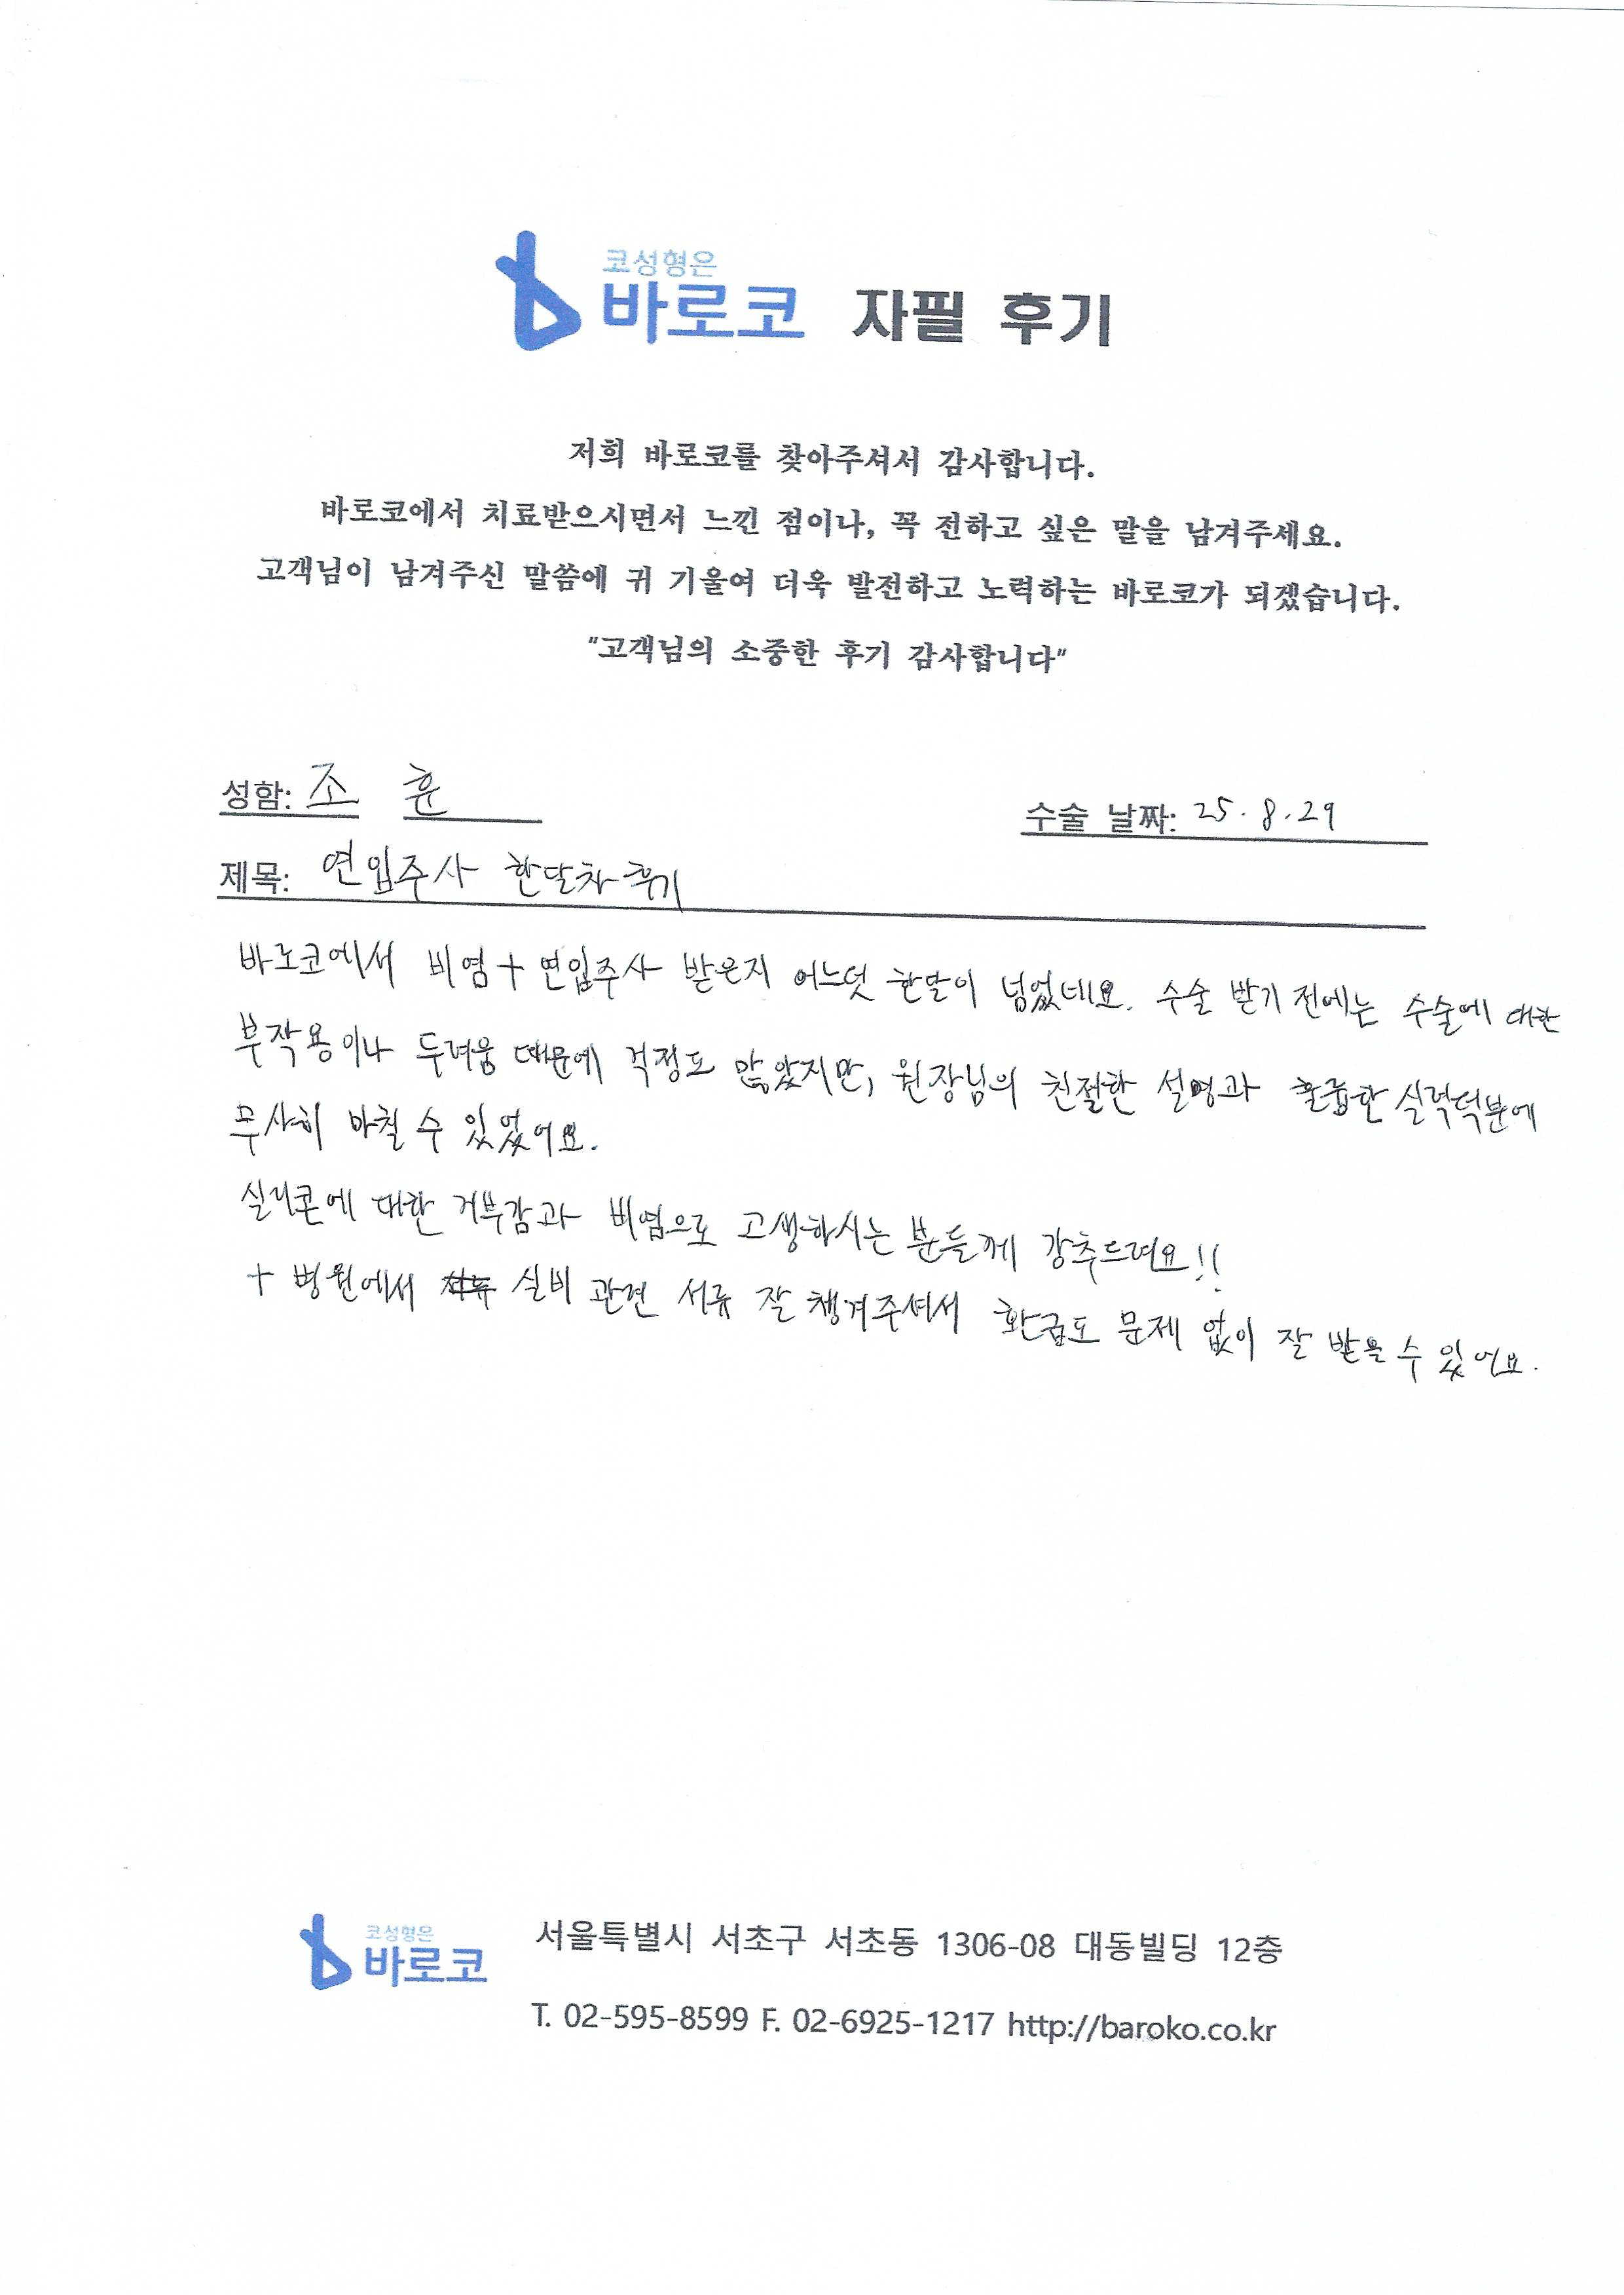 코성형은
바로코 자필 후기
저희 바로코를 찾아주셔서 감사합니다.
바로코에서 치료받으시면서 느낀 점이나, 꼭 전하고 싶은 말을 남겨주세요.
고객님이 남겨주신 말씀에 귀 기울여 더욱 발전하고 노력하는 바로코가 되겠습니다.
"고객님의 소중한 후기 감사합니다"
성함: 조 훈 수술 날짜: 25.8.29
제목: 연입주사 한달차 후기
바로코에서 비염+연입주사 받은지 어느덧 한달이 넘었네요. 수술 받기 전에는 수술에 대한
부작용이나 두려움 때문에 걱정도 많았지만, 원장님의 친절한 설명과 훌륭한 실력덕분에
무사히 마칠 수 있었어요.
실리콘에 대한 거부감과 비염으로 고생하시는 분들께 강추드려요!!
+ 병원에서 실비 관련 서류 잘 챙겨주셔서 환급도 문제 없이 잘 받을 수 있어요.
코성형은
바로코
서울특별시 서초구 서초동 1306-08 대동빌딩 12층
T. 02-595-8599 F. 02-6925-1217 http://baroko.co.kr